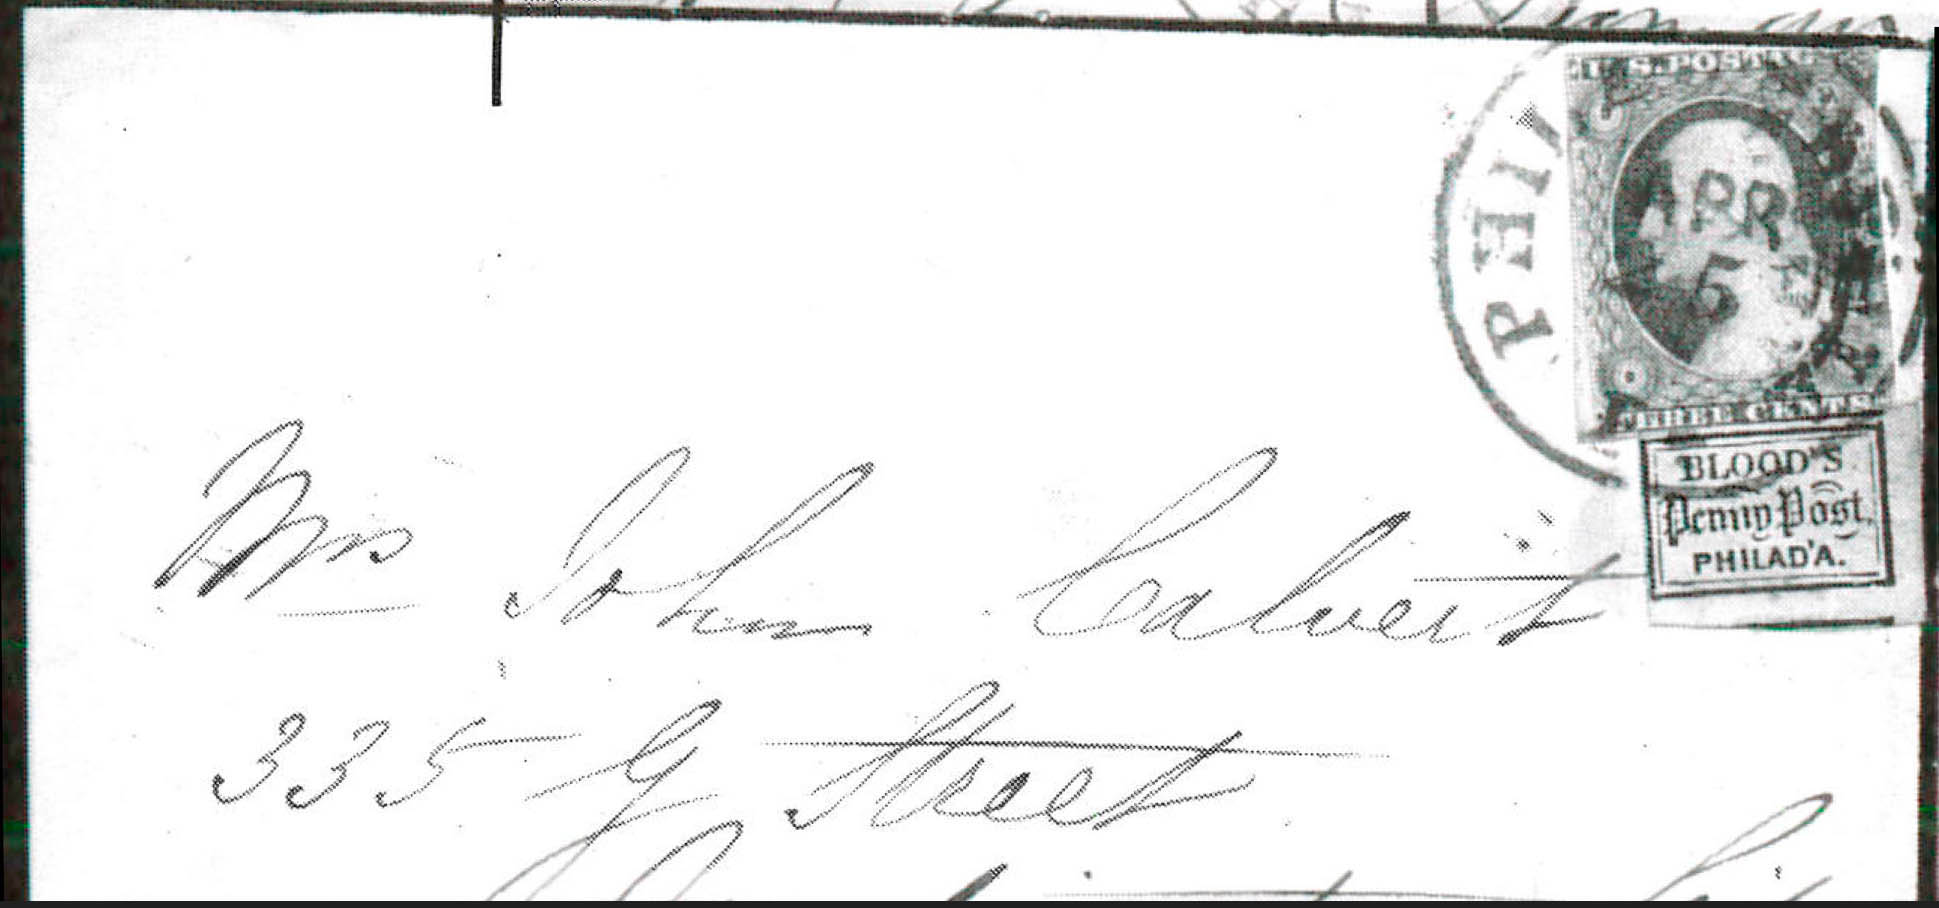 U.S. POSTAG
PHI
APR
5
THREE CENTS
BLOOD'S
Penny Post,
PHILAD'A.
Mrs John Calvert
335 G Street